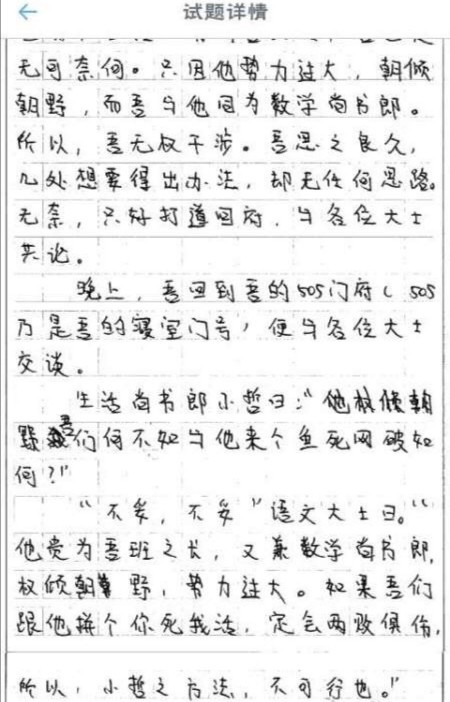 试题详情
无可奈何。只因他势力过大，朝倾
朝野，而吾与他同为数学尚书郎。
所以，吾无权干涉。吾思之良久，
几处想要得出办法，却无任何思路。
无奈，只好打道回府，与各位大士
共论。
晚上，吾回到吾的505门府（505
乃是吾的寝室门号，便与各位大士
交谈。
生活尚书郎小哲曰：“他权倾朝
野吾们何不如与他来个鱼死网破如
何？”
“不妥，不妥”语文大士曰。“
他贵为吾班之长，又兼数学尚书郎，
权倾朝野，势力过大。如果吾们
跟他拼个你死我活，定会两败俱伤，
所以，小哲之方法，不可行也。”